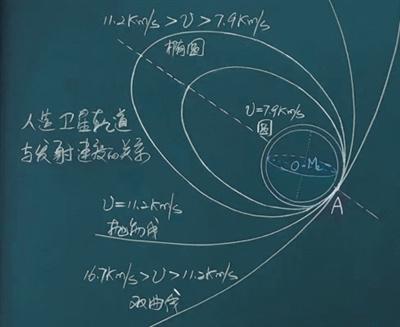 11.2Km/s > υ > 7.9Km/s
椭圆
人造卫星轨道
与发射速度的关系
υ=7.9Km/s
圆
O
M
A
υ=11.2Km/s
抛物线
16.7Km/s > υ > 11.2Km/s
双曲线